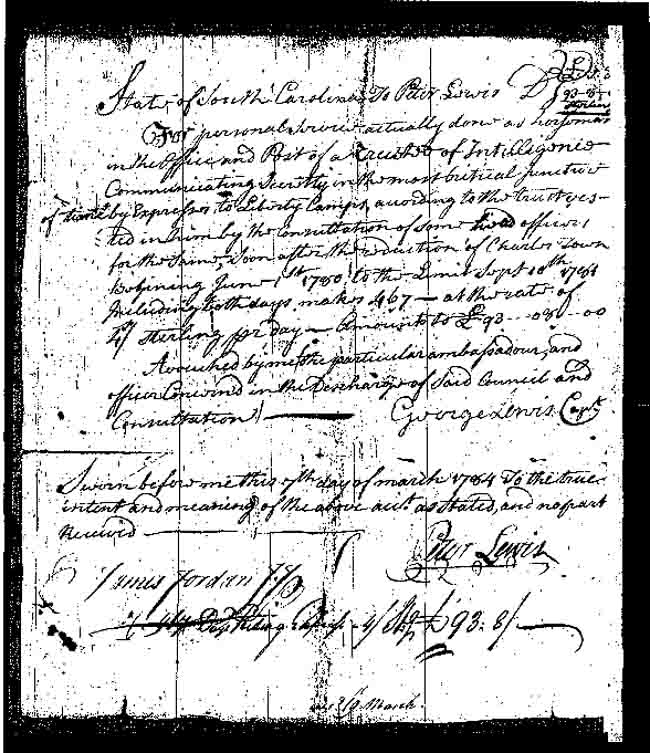 State of South Carolina To Peter Lewis Dr £ S
93-8-
Sterlin
For personal service actually done as horseman
in the Office and Post of a Trustee of Intelligence
Communicating Secretly in the most critical juncture
of time by Expresses to Liberty Camps, according to the trust ves-
ted in him by the consultation of some head officers
for the same, Soon after the reduction of Charles Town
Begining June 1st 1780 to the Limit Sept 10th 1781
Including both days makes 467 — at the rate of
4/ sterling pr day — Amounts to £93--08--00
Avouched by me the particular ambassadour, and
officer Concerned in the Discharge of Said Council and
Consultation —
George Lewis Capt
Sworn before me this 7th day of march 1784 To the true
intent and meaning of the above acct as stated, and no part
Received —
Peter Lewis
James Jordan J.P.
4/ Stg £ 93:8/ —
March